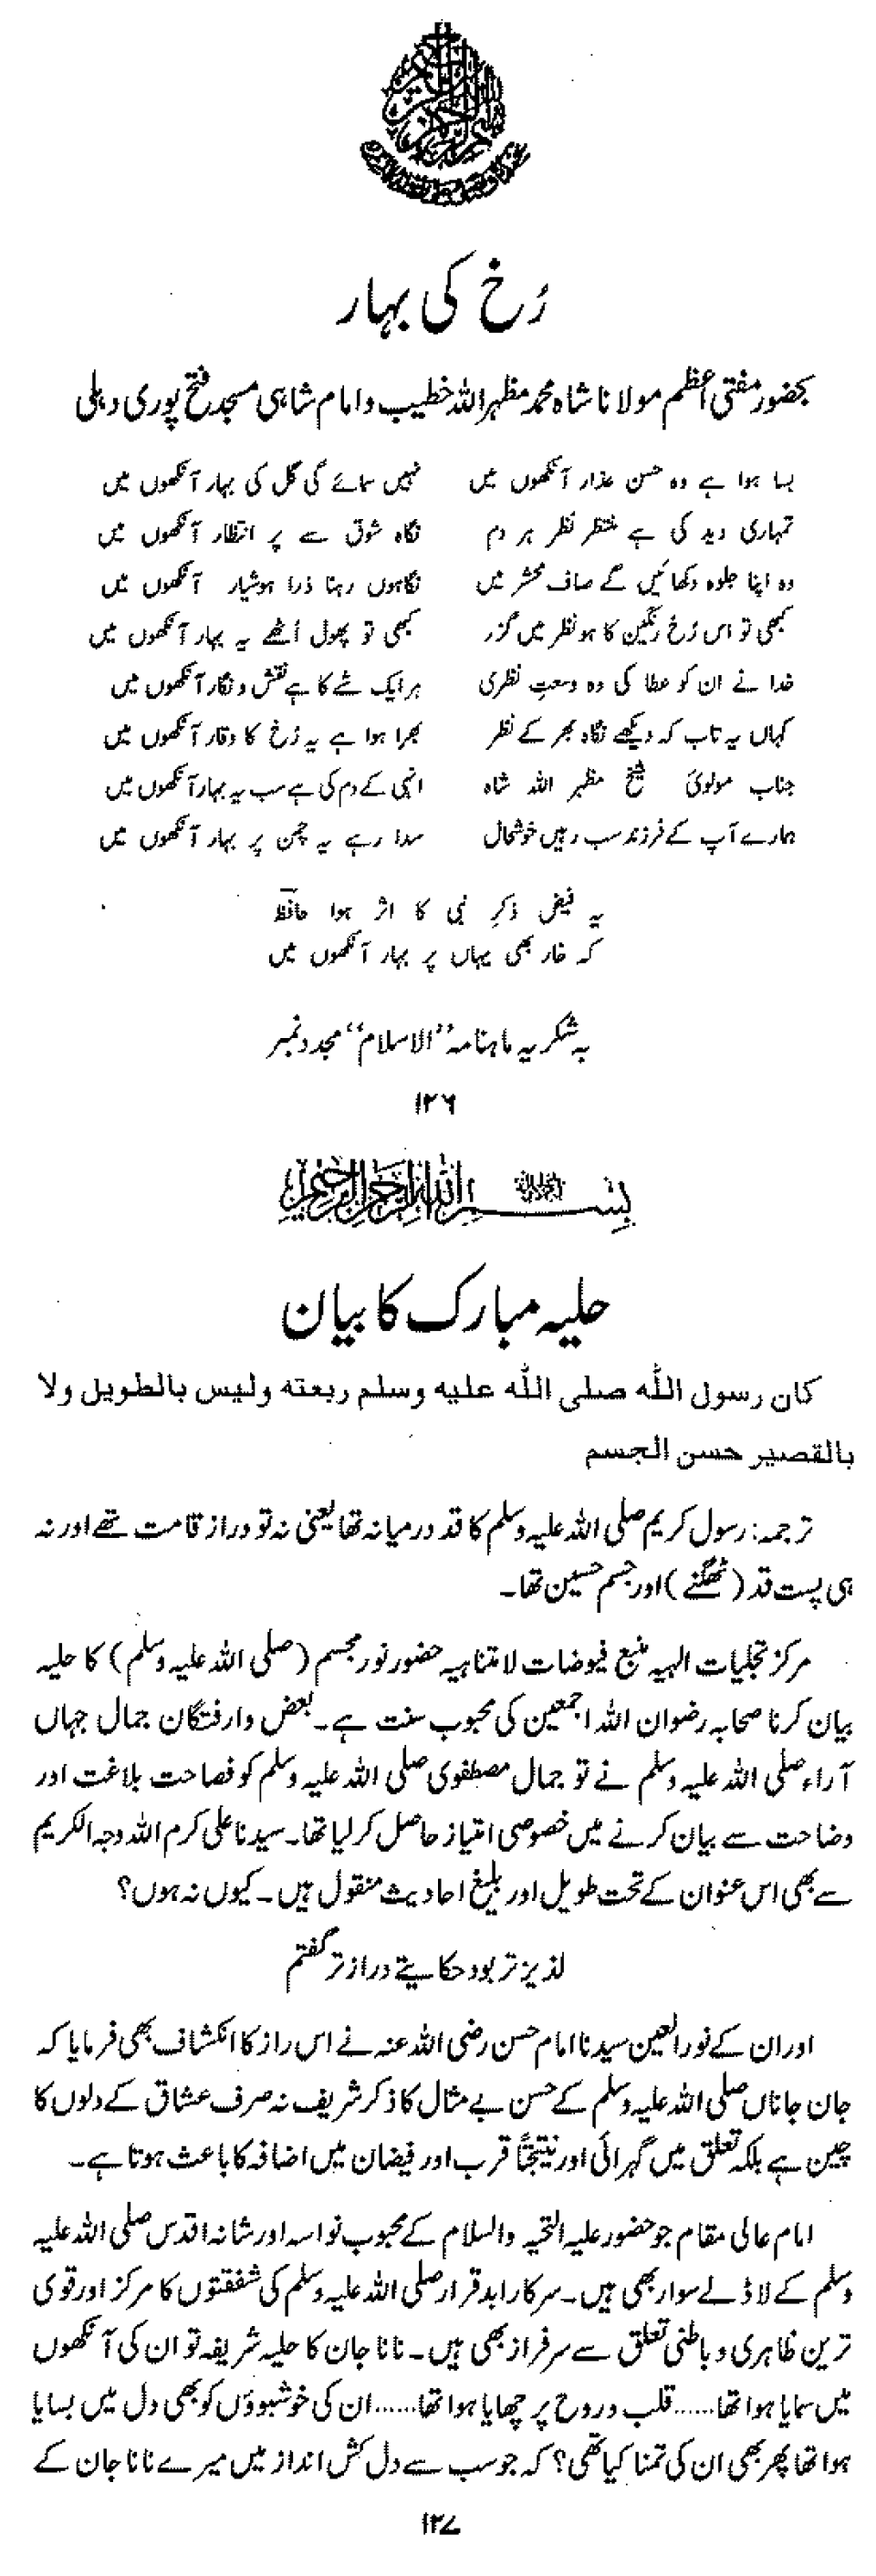 رُخ کی بہار
بحضور مفتی اعظم مولانا شاہ محمد مظہر اللہ خطیب و امام شاہی مسجد فتح پوری دہلی
بسا ہوا ہے وہ حسن عذار آنکھوں میں نہیں سمائے گی گل کی بہار آنکھوں میں
تمہاری دید کی ہے منتظر نظر ہر دم نگاہ شوق سے پر انتظار آنکھوں میں
وہ اپنا جلوہ دکھائیں گے صاف محشر میں نگاہوں رہنا ذرا ہوشیار آنکھوں میں
کبھی تو اس رُخ رنگین کا ہو نظر میں گزر کبھی تو پھول اُٹھے یہ بہار آنکھوں میں
خدا نے ان کو عطا کی وہ وسعتِ نظری ہر ایک شے کا ہے نقش و نگار آنکھوں میں
کہاں یہ تاب کہ دیکھے نگاہ بھر کے نظر بھرا ہوا ہے یہ رُخ کا وقار آنکھوں میں
جناب مولوی شیخ مظہر اللہ شاہ انہی کے دم کی ہے سب یہ بہار آنکھوں میں
ہمارے آپ کے فرزند سب رہیں خوشحال سدا رہے یہ چمن پر بہار آنکھوں میں
یہ فیض ذکرِ نبی کا اثر ہوا حافظ
کہ خار بھی یہاں پر بہار آنکھوں میں
بہ شکریہ ماہنامہ ’’الاسلام‘‘ مجدد نمبر
۱۲۶
بسم اللہ الرحمن الرحیم
حلیہ مبارک کا بیان
کان رسول اللّٰه صلی اللّٰه علیه وسلم ربعته ولیس بالطویل ولا
بالقصیر حسن الجسم
ترجمہ: رسول کریم صلی اللہ علیہ وسلم کا قد درمیانہ تھا یعنی نہ تو دراز قامت تھے اور نہ
ہی پست قد (ٹھگنے) اور جسم حسین تھا۔
مرکز تجلیات الہیہ منبع فیوضات لامتناہیہ حضور نور مجسم (صلی اللہ علیہ وسلم) کا حلیہ
بیان کرنا صحابہ رضوان اللہ اجمعین کی محبوب سنت ہے۔ بعض وارفتگان جمال جہاں
آراء صلی اللہ علیہ وسلم نے تو جمال مصطفوی صلی اللہ علیہ وسلم کو فصاحت بلاغت اور
وضاحت سے بیان کرنے میں خصوصی امتیاز حاصل کر لیا تھا۔ سیدنا علی کرم اللہ وجہ الکریم
سے بھی اس عنوان کے تحت طویل اور بلیغ احادیث منقول ہیں۔ کیوں نہ ہوں؟
لذیز تر بود حکایتے دراز تر گفتم
اور ان کے نور العین سیدنا امام حسن رضی اللہ عنہ نے اس راز کا انکشاف بھی فرمایا کہ
جان جاناں صلی اللہ علیہ وسلم کے حسن بے مثال کا ذکر شریف نہ صرف عشاق کے دلوں کا
چین ہے بلکہ تعلق میں گہرائی اور نتیجتاً قرب اور فیضان میں اضافہ کا باعث ہوتا ہے۔
امام عالی مقام جو حضور علیہ التحیہ والسلام کے محبوب نواسہ اور شانہ اقدس صلی اللہ علیہ
وسلم کے لاڈلے سوار بھی ہیں۔ سرکار ابد قرار صلی اللہ علیہ وسلم کی شفقتوں کا مرکز اور قوی
ترین ظاہری و باطنی تعلق سے سرفراز بھی ہیں۔ نانا جان کا حلیہ شریفہ تو ان کی آنکھوں
میں سمایا ہوا تھا...... قلب و روح پر چھایا ہوا تھا...... ان کی خوشبوؤں کو بھی دل میں بسایا
ہوا تھا پھر بھی ان کی تمنا کیا تھی؟ کہ جو سب سے دل کش انداز میں میرے نانا جان کے
۱۲۷